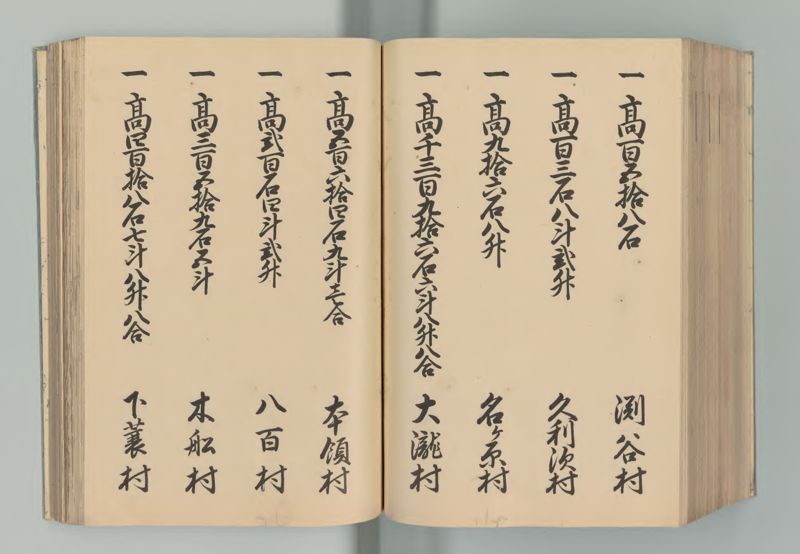 一 高百五拾八石 渕谷村
一 高百三石八斗弐升 久利須村
一 高九拾六石八升 名ヶ原村
一 高千三百九拾六石六斗八升八合 大瀧村
一 高五百六拾四石九斗壱合 本領村
一 高弐百石四斗弐升 八百村
一 高三百五拾九石五斗 木舩村
一 高四百拾八石七斗八升八合 下蓑村